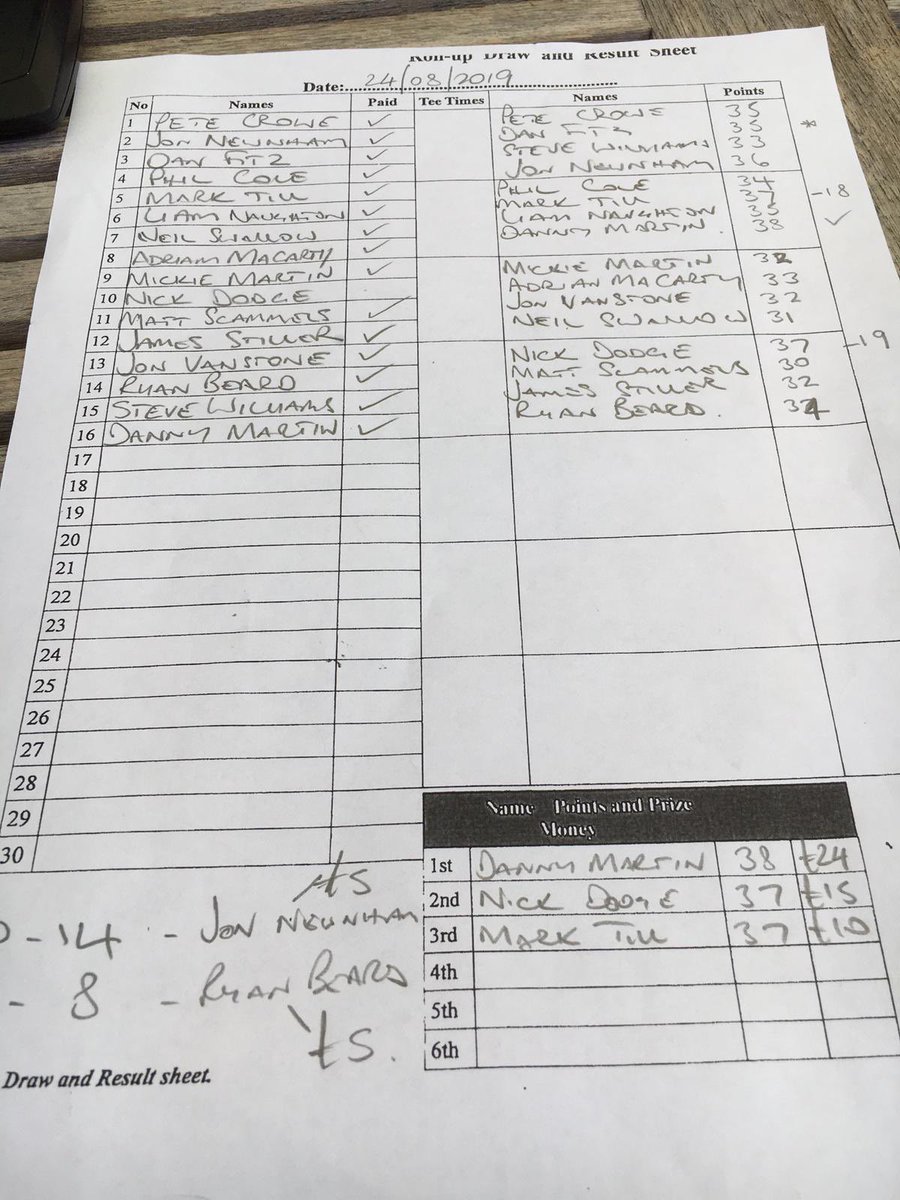 Roll-up Draw and Result Sheet
Date:........24/08/2019........
No Names Paid Tee Times Names Points
1 PETE CROWE ✓ PETE CROWE 35
2 JON NEWNHAM ✓ DAN FITZ 35 *
3 DAN FITZ ✓ STEVE WILLIAMS 33
4 PHIL COLE ✓ JON NEWNHAM 36
5 MARK TILL ✓ PHIL COLE 34
6 LIAM NAUGHTON ✓ MARK TILL 37 -18
7 NEIL SWALLOW ✓ LIAM NAUGHTON 35
8 ADRIAM MACARTY ✓ DANNY MARTIN. 38 ✓
9 MICKIE MARTIN ✓ MICKIE MARTIN
10 NICK DODGE ADRIAN MACARTY 33
11 MATT SCAMMELS ✓ JON VANSTONE 32
12 JAMES STILLER ✓ NEIL SWALLOW 31
13 JON VANSTONE ✓ NICK DODGE 37 -19
14 RYAN BEARD ✓ MATT SCAMMELS 30
15 STEVE WILLIAMS ✓ JAMES STILLER 32
16 DANNY MARTIN ✓ RYAN BEARD.
17
18
19
20
21
22
23
24
25
26
27
28
29
30
Name Points and Prize
Money
1st DANNY MARTIN 38 £24
2nd NICK DODGE 37 £15
3rd MARK TILL 37 £10
4th
5th
6th
£5
- 14 - JON NEWNHAM
- 8 - RYAN BEARD
£5.
Draw and Result sheet.